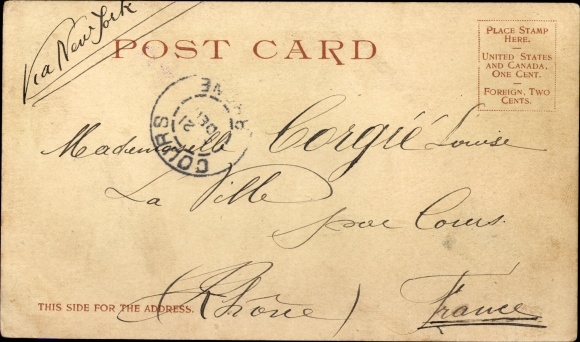 Via New York
POST CARD
PLACE STAMP
HERE.
UNITED STATES
AND CANADA,
ONE CENT.
FOREIGN, TWO
CENTS.
COURS
RHONE
21
Mademoiselle Corgié Louise
La Ville
par Cours
(Rhône) France
THIS SIDE FOR THE ADDRESS.